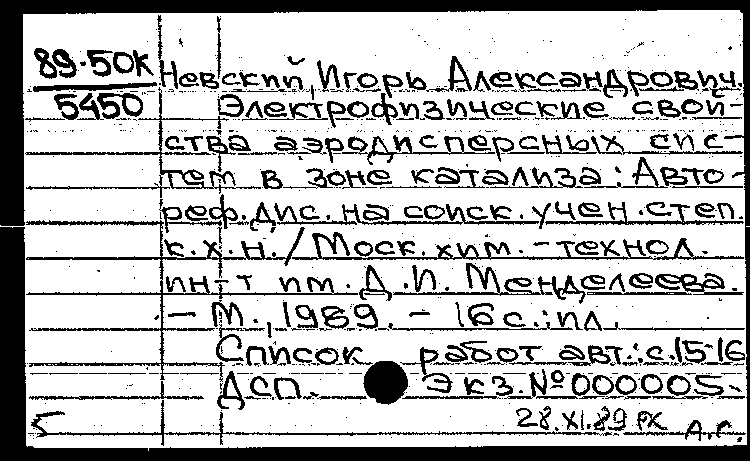 89-50К
5450
Невский, Игорь Александрович.
Электрофизические свой-
ства аэродисперсных сис-
тем в зоне катализа: Авто-
реф. дис. на соиск. учен. степ.
к.х.н. / Моск. хим.-технол.
ин-т им. Д.И. Менделеева.
– М., 1989. – 16 с.: ил.
Список работ авт.: с. 15-16
ДСП. Экз. № 000005.
28.XI.89 РХ А.Г.
5